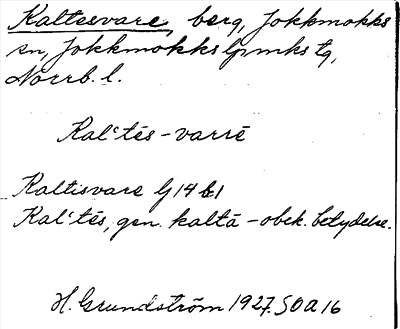 Kaltesvare, berg, Jokkmokks
sn, Jokkmokks lpmks tg,
Norrb. l.
Kalʿtés-varrē
Kaltisvare G 14 b1
Kalʿtés, gen. kaltā - obek. betydelse.
H. Grundström 1927. SOA 16